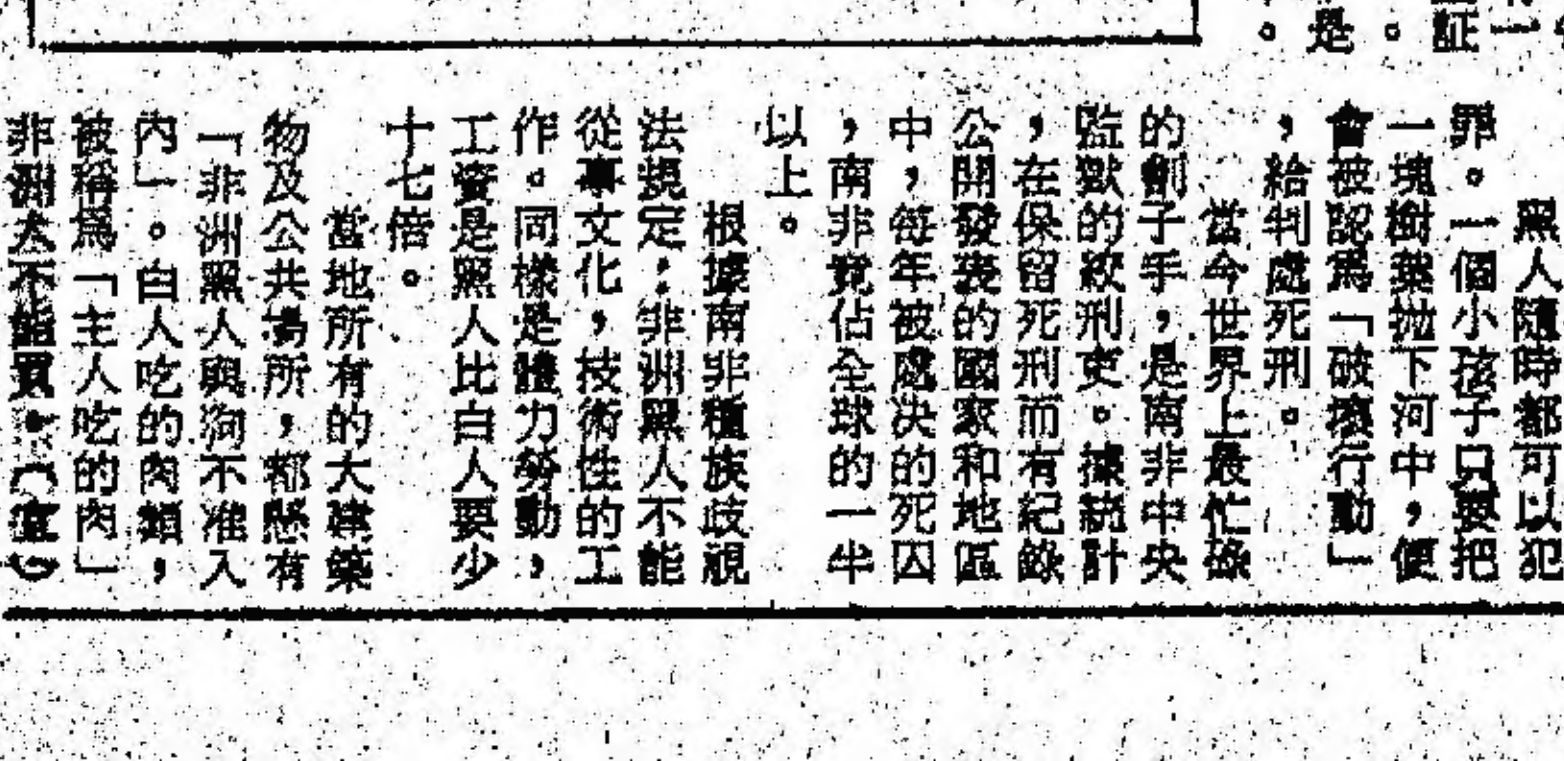 一
証
。
是
。
黑人隨時都可以犯
罪。一個小孩子只要把
一塊樹葉拋下河中，便
會被認爲「破壞行動」
，給判處死刑。
當今世界上最忙碌
的劊子手，是南非中央
監獄的絞刑吏。據統計
，在保留死刑而有紀錄
公開發表的國家和地區
中，每年被處決的死囚
，南非竟佔全球的一半
以上。
根據南非種族歧視
法規定：非洲黑人不能
從事文化，技術性的工
作。同樣是體力勞動，
工資是黑人比白人要少
十七倍。
當地所有的大建築
物及公共場所，都懸有
「非洲黑人與狗不准入
內」。白人吃的肉類，
被稱爲「主人吃的肉」
非洲人不能買。